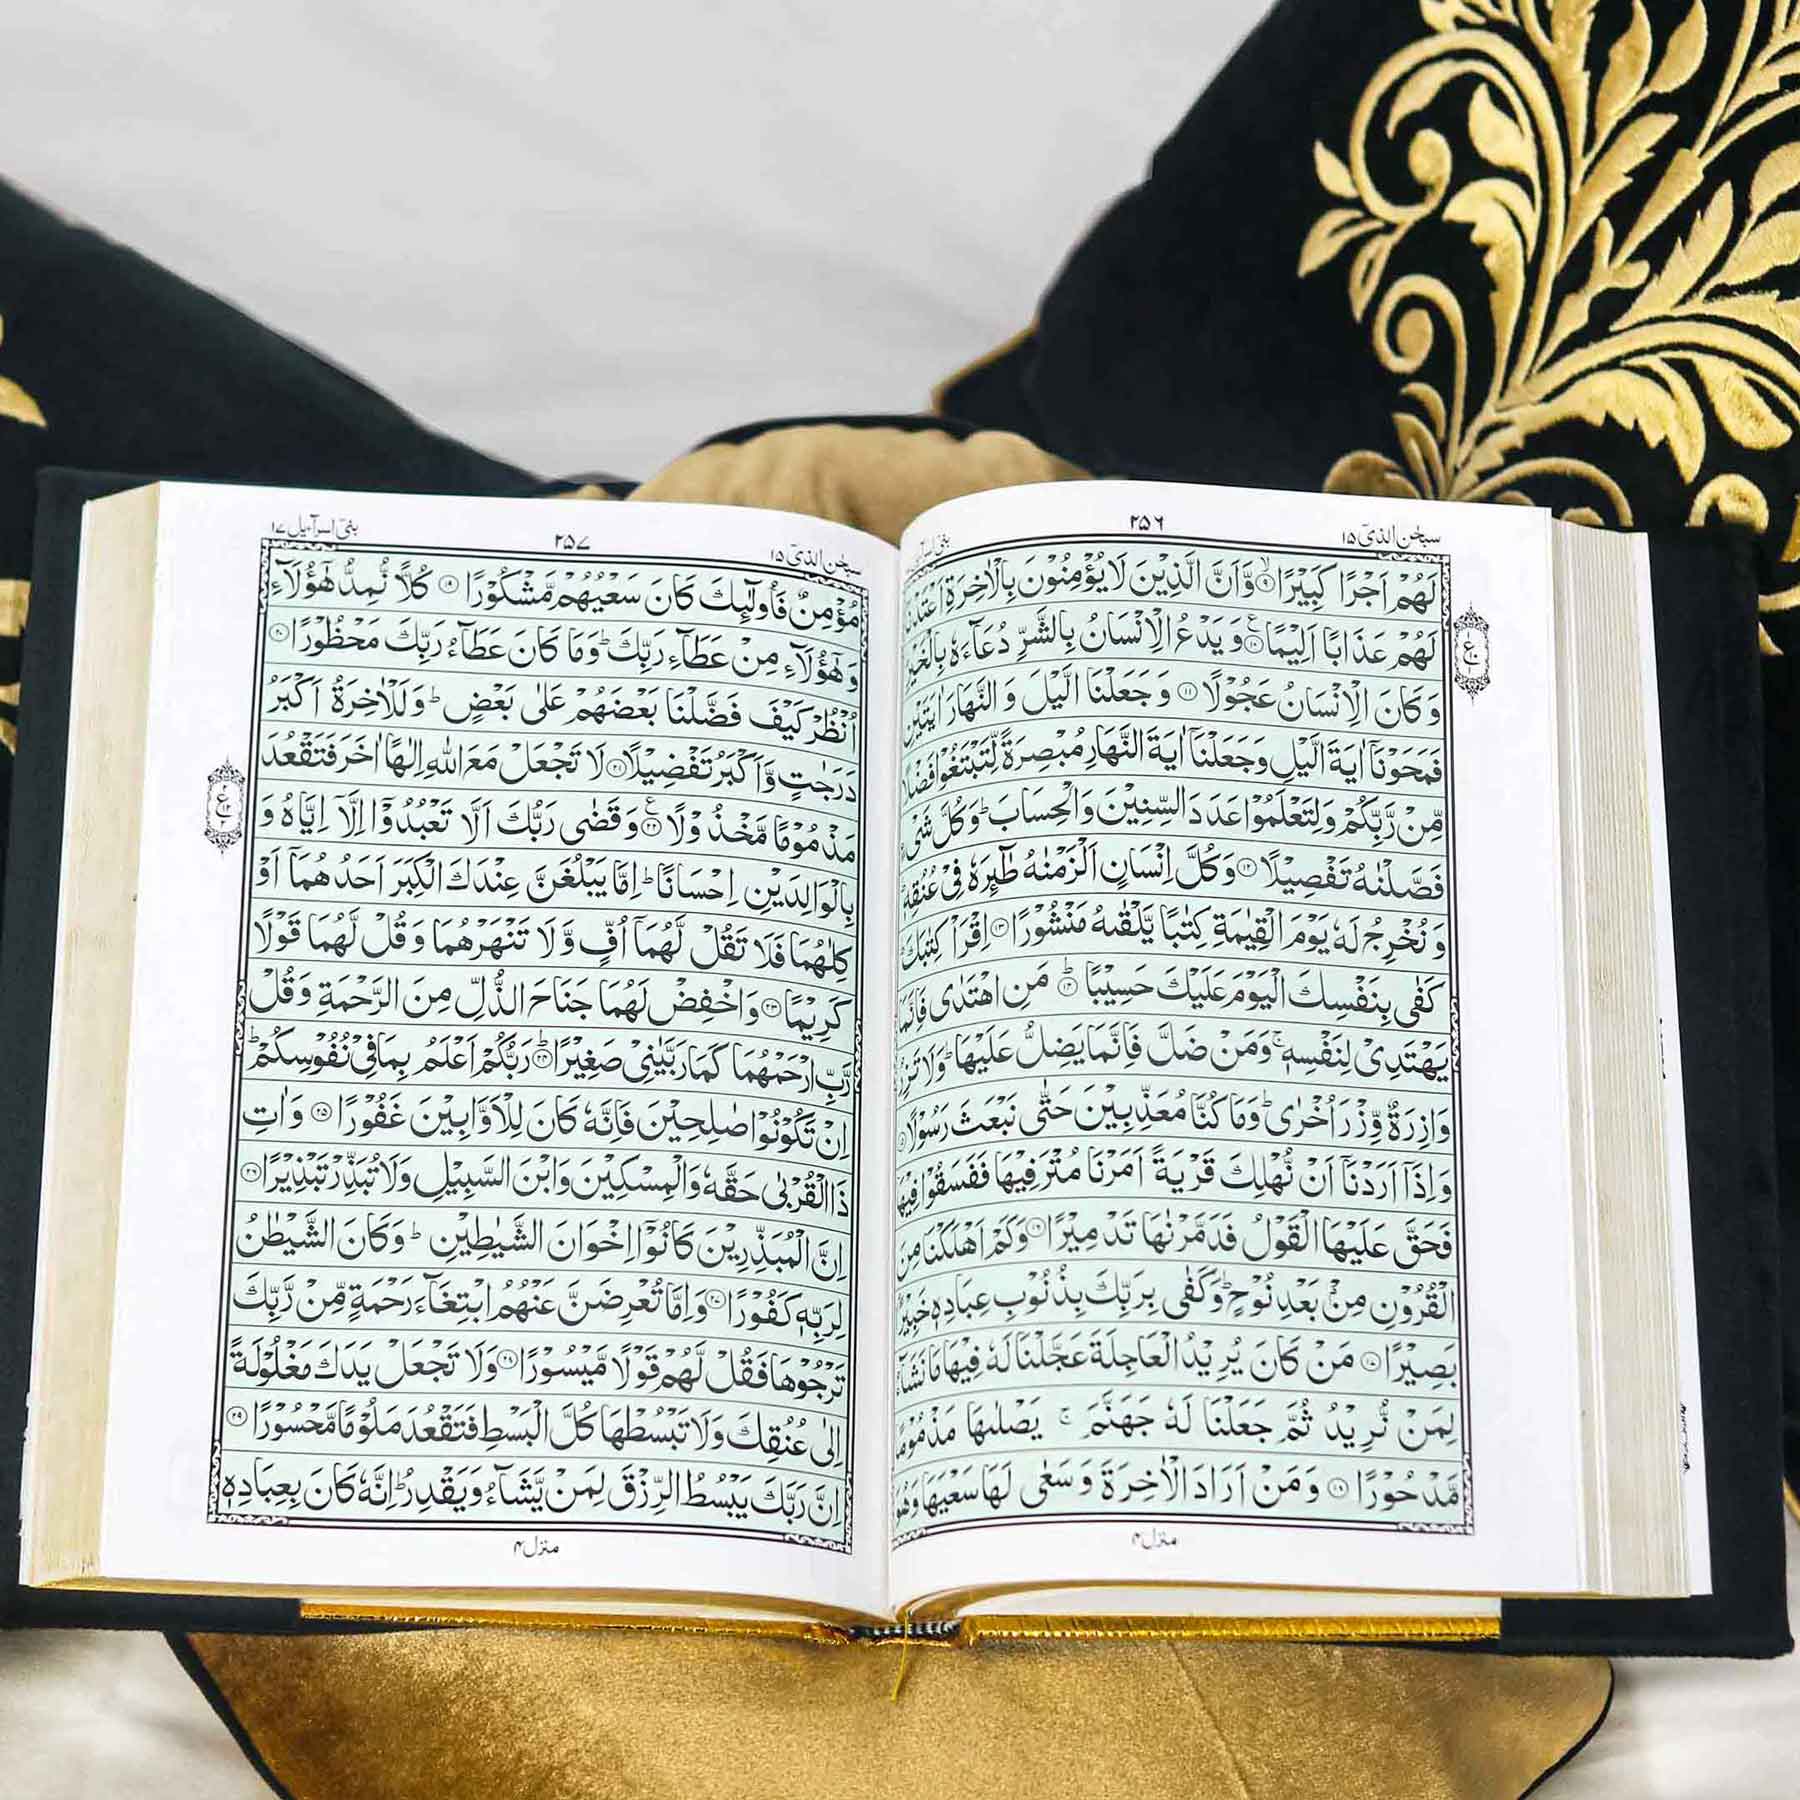 سبحٰن الذیٓ ۱۵
۲۵۶
بنیٓ اسرآءیل
لَهُمْ اَجْرًا كَبِيْرًا ۙ۹ وَّاَنَّ الَّذِيْنَ لَا يُؤْمِنُوْنَ بِالْاٰخِرَةِ اَعْتَدْنَا
لَهُمْ عَذَابًا اَلِيْمًا ۧ۱۰ وَيَدْعُ الْاِنْسَانُ بِالشَّرِّ دُعَآءَهٗ بِالْخَيْرِؕ
وَكَانَ الْاِنْسَانُ عَجُوْلًا ۱۱ وَجَعَلْنَا الَّيْلَ وَالنَّهَارَ اٰيَتَيْنِ
فَمَحَوْنَاۤ اٰيَةَ الَّيْلِ وَجَعَلْنَاۤ اٰيَةَ النَّهَارِ مُبْصِرَةً لِّتَبْتَغُوْا فَضْلًا
مِّنْ رَّبِّكُمْ وَلِتَعْلَمُوْا عَدَدَ السِّنِيْنَ وَالْحِسَابَؕ وَكُلَّ شَیْءٍ
فَصَّلْنٰهُ تَفْصِيْلًا ۱۲ وَكُلَّ اِنْسَانٍ اَلْزَمْنٰهُ طٰٓئِرَهٗ فِیْ عُنُقِهٖؕ
وَنُخْرِجُ لَهٗ يَوْمَ الْقِيٰمَةِ كِتٰبًا يَّلْقٰىهُ مَنْشُوْرًا ۱۳ اِقْرَاْ كِتٰبَكَؕ
كَفٰى بِنَفْسِكَ الْيَوْمَ عَلَيْكَ حَسِيْبًا ؕ۱۴ مَنِ اهْتَدٰى فَاِنَّمَا
يَهْتَدِیْ لِنَفْسِهٖۚ وَمَنْ ضَلَّ فَاِنَّمَا يَضِلُّ عَلَيْهَاؕ وَلَا تَزِرُ
وَازِرَةٌ وِّزْرَ اُخْرٰىؕ وَمَا كُنَّا مُعَذِّبِيْنَ حَتّٰى نَبْعَثَ رَسُوْلًا ۱۵
وَاِذَاۤ اَرَدْنَاۤ اَنْ نُّهْلِكَ قَرْيَةً اَمَرْنَا مُتْرَفِيْهَا فَفَسَقُوْا فِيْهَا
فَحَقَّ عَلَيْهَا الْقَوْلُ فَدَمَّرْنٰهَا تَدْمِيْرًا ۱۶ وَكَمْ اَهْلَكْنَا مِنَ
الْقُرُوْنِ مِنْۢ بَعْدِ نُوْحٍؕ وَكَفٰى بِرَبِّكَ بِذُنُوْبِ عِبَادِهٖ خَبِيْرًۢا
بَصِيْرًا ۱۷ مَنْ كَانَ يُرِيْدُ الْعَاجِلَةَ عَجَّلْنَا لَهٗ فِيْهَا مَا نَشَآءُ
لِمَنْ نُّرِيْدُ ثُمَّ جَعَلْنَا لَهٗ جَهَنَّمَۚ يَصْلٰىهَا مَذْمُوْمًا
مَّدْحُوْرًا ۱۸ وَمَنْ اَرَادَ الْاٰخِرَةَ وَسَعٰى لَهَا سَعْيَهَا وَهُوَ
منزل ۴
سبحٰن الذیٓ ۱۵
۲۵۷
بنیٓ اسرآءیل ۱۷
مُؤْمِنٌ فَاُولٰٓئِكَ كَانَ سَعْيُهُمْ مَّشْكُوْرًا ۱۹ كُلًّا نُّمِدُّ هٰۤؤُلَآءِ
وَهٰۤؤُلَآءِ مِنْ عَطَآءِ رَبِّكَؕ وَمَا كَانَ عَطَآءُ رَبِّكَ مَحْظُوْرًا ۲۰
اُنْظُرْ كَيْفَ فَضَّلْنَا بَعْضَهُمْ عَلٰى بَعْضٍؕ وَلَلْاٰخِرَةُ اَكْبَرُ
دَرَجٰتٍ وَّاَكْبَرُ تَفْضِيْلًا ۲۱ لَا تَجْعَلْ مَعَ اللّٰهِ اِلٰهًا اٰخَرَ فَتَقْعُدَ
مَذْمُوْمًا مَّخْذُوْلًا ۧ۲۲ وَقَضٰى رَبُّكَ اَلَّا تَعْبُدُوْۤا اِلَّاۤ اِيَّاهُ وَ
بِالْوَالِدَيْنِ اِحْسَانًاؕ اِمَّا يَبْلُغَنَّ عِنْدَكَ الْكِبَرَ اَحَدُهُمَاۤ اَوْ
كِلٰهُمَا فَلَا تَقُلْ لَّهُمَاۤ اُفٍّ وَّلَا تَنْهَرْهُمَا وَقُلْ لَّهُمَا قَوْلًا
كَرِيْمًا ۲۳ وَاخْفِضْ لَهُمَا جَنَاحَ الذُّلِّ مِنَ الرَّحْمَةِ وَقُلْ
رَّبِّ ارْحَمْهُمَا كَمَا رَبَّيٰنِیْ صَغِيْرًا ؕ۲۴ رَبُّكُمْ اَعْلَمُ بِمَا فِیْ نُفُوْسِكُمْؕ
اِنْ تَكُوْنُوْا صٰلِحِيْنَ فَاِنَّهٗ كَانَ لِلْاَوَّابِيْنَ غَفُوْرًا ۲۵ وَاٰتِ
ذَا الْقُرْبٰى حَقَّهٗ وَالْمِسْكِيْنَ وَابْنَ السَّبِيْلِ وَلَا تُبَذِّرْ تَبْذِيْرًا ۲۶
اِنَّ الْمُبَذِّرِيْنَ كَانُوْۤا اِخْوَانَ الشَّيٰطِيْنِؕ وَكَانَ الشَّيْطٰنُ
لِرَبِّهٖ كَفُوْرًا ۲۷ وَاِمَّا تُعْرِضَنَّ عَنْهُمُ ابْتِغَآءَ رَحْمَةٍ مِّنْ رَّبِّكَ
تَرْجُوْهَا فَقُلْ لَّهُمْ قَوْلًا مَّيْسُوْرًا ۲۸ وَلَا تَجْعَلْ يَدَكَ مَغْلُوْلَةً
اِلٰى عُنُقِكَ وَلَا تَبْسُطْهَا كُلَّ الْبَسْطِ فَتَقْعُدَ مَلُوْمًا مَّحْسُوْرًا ۲۹
اِنَّ رَبَّكَ يَبْسُطُ الرِّزْقَ لِمَنْ يَّشَآءُ وَيَقْدِرُؕ اِنَّهٗ كَانَ بِعِبَادِهٖ
منزل ۴